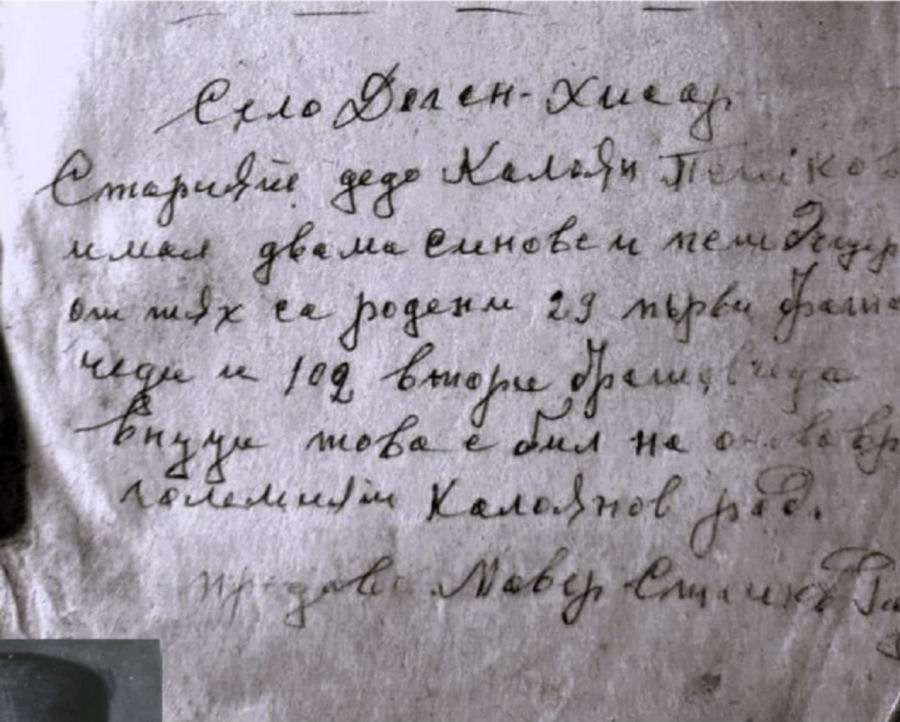 Село Деген-Хисар
Старият дедо Калоян
имал двама синове и пет
от тях са родени 29 първи
чеда и 102 втори братовчеда
внуци това е бил на онова вр
големият Калоянов род.
предава Мавер